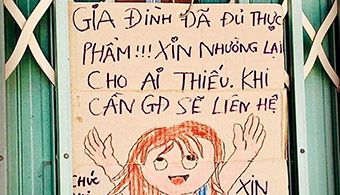 GIA ĐÌNH ĐÃ ĐỦ THỰC
PHẨM!!! XIN NHƯỜNG LẠI
CHO AI THIẾU. KHI
CẦN GĐ SẼ LIÊN HỆ
CHÚC
XIN